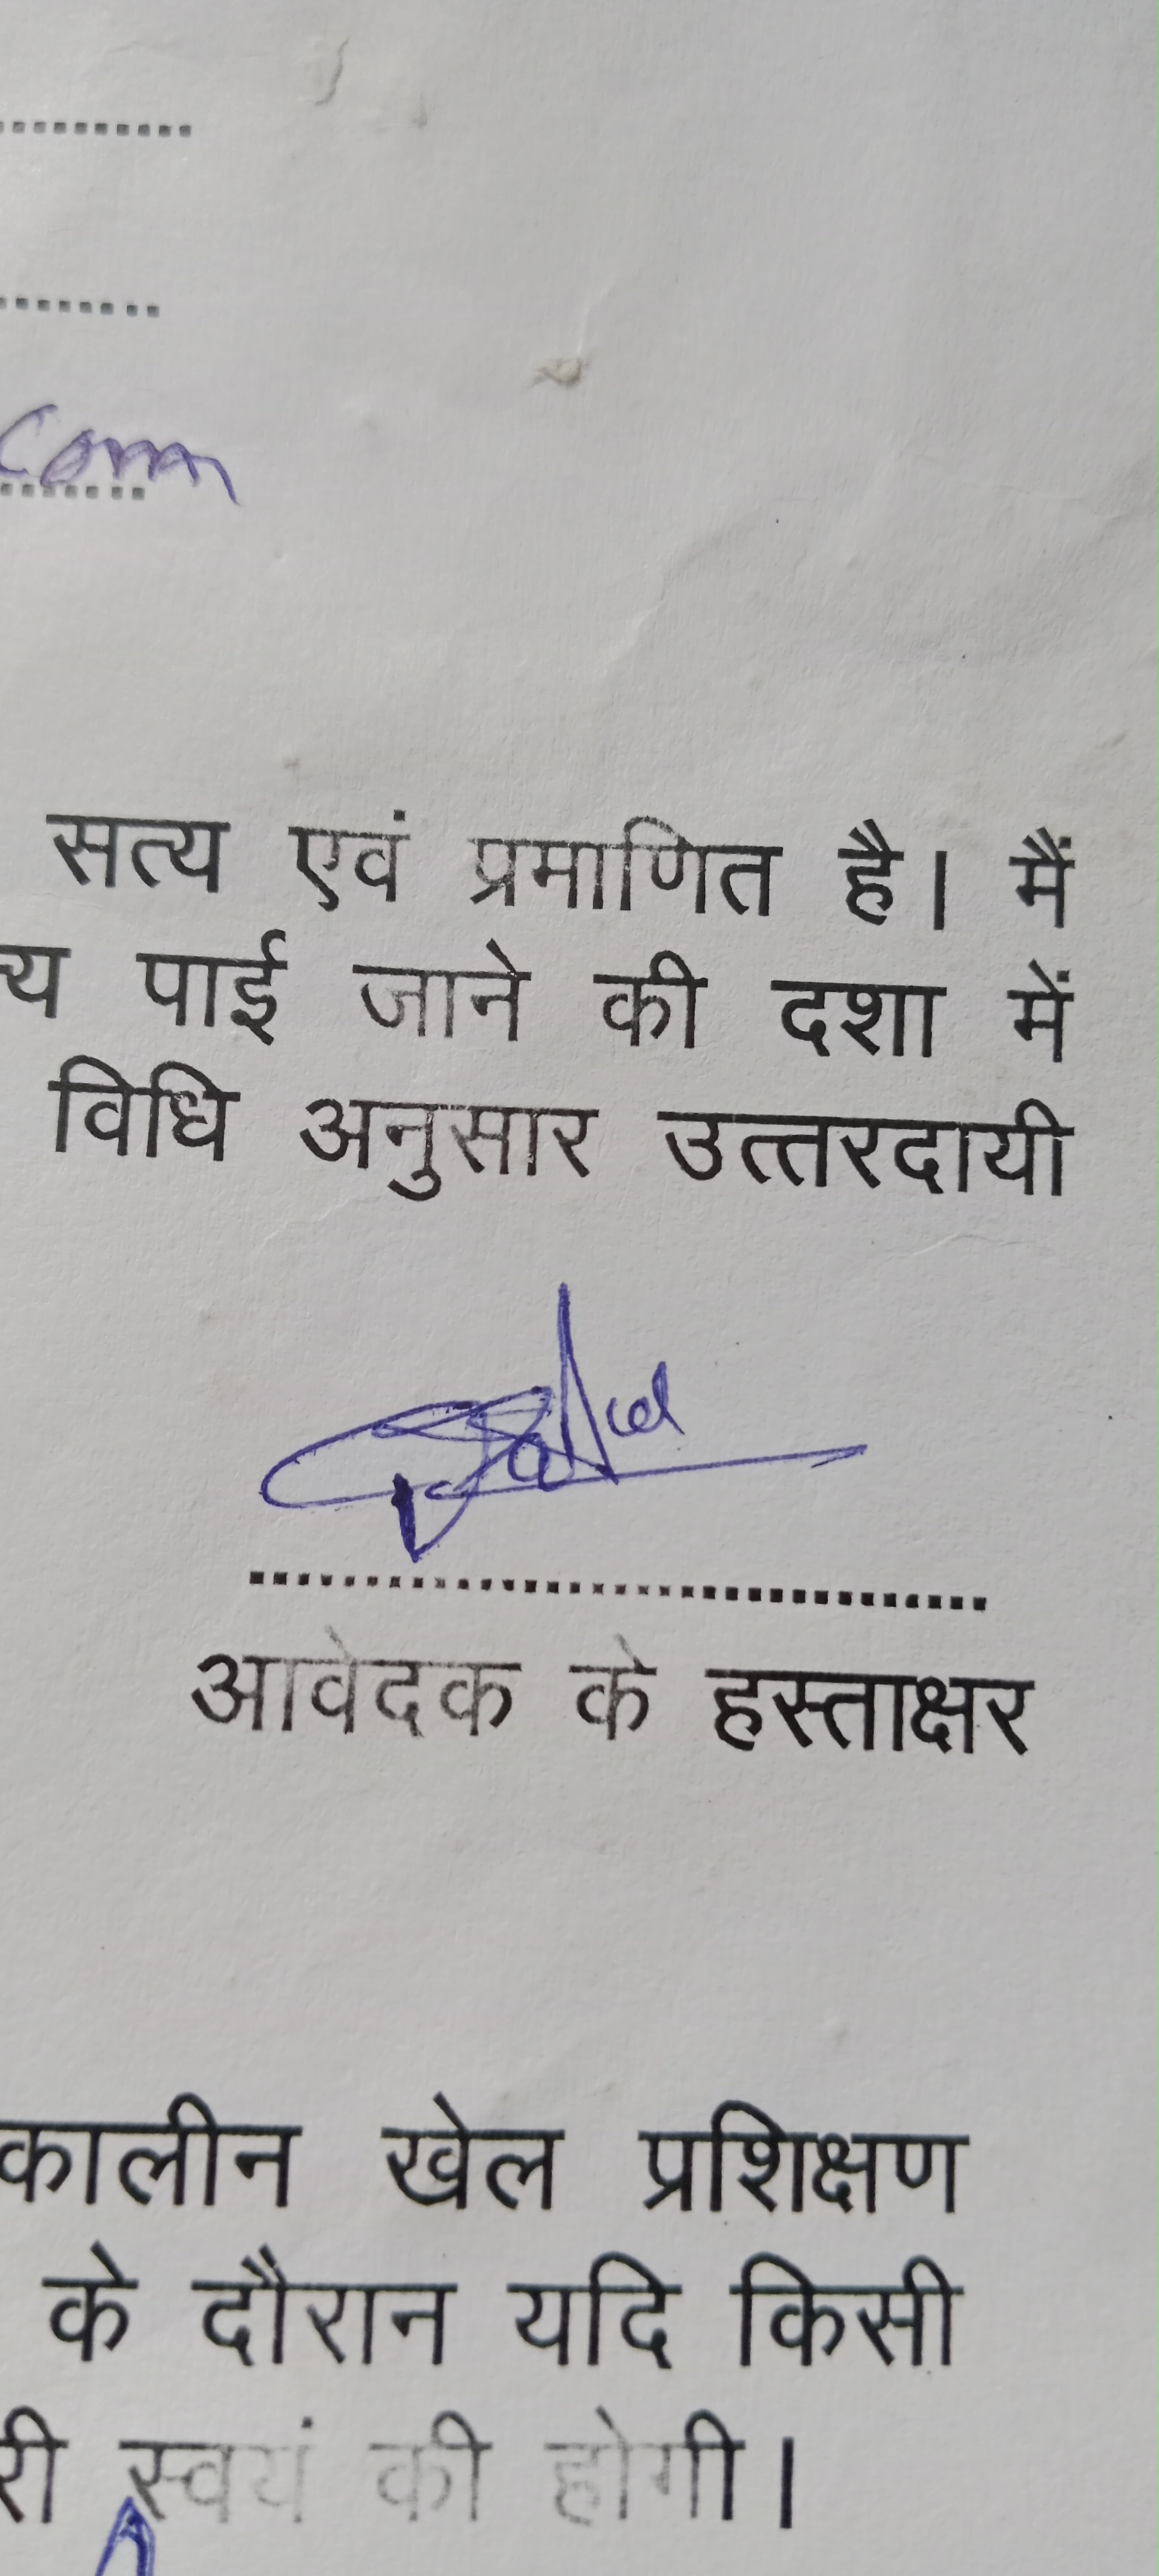 ....................
................
com
सत्य एवं प्रमाणित है। मैं
पाई जाने की दशा में
विधि अनुसार उत्तरदायी
आवेदक के हस्ताक्षर
कालीन खेल प्रशिक्षण
के दौरान यदि किसी
री स्वयं की होगी।